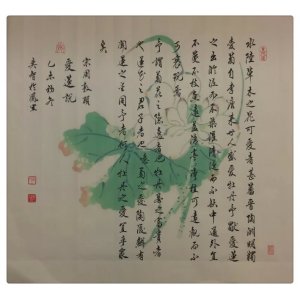 水陸草木之花可愛者甚蕃晉陶渊明獨
愛菊自李唐来世人盛愛牡丹予獨愛蓮
之出於泥而不染濯清漣而不妖中通外直
不蔓不枝香遠益清亭亭净植可遠觀而不
可褻玩焉
予謂菊花之隱逸者也牡丹花之富貴者
也蓮花之君子者也噫菊之愛陶後鮮有
聞蓮之愛同予者何人牡丹之愛宜乎衆
矣
宋周敦頤
愛蓮說
乙未初冬